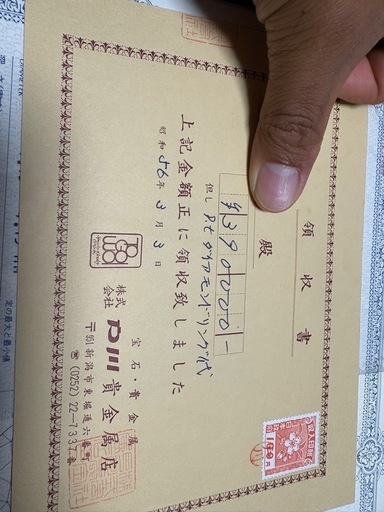 領収書
殿
¥390000-
但しPtダイアモンドリング代
上記金額正に領収致しました
昭和56年3月3日
宝石・貴金属
株式会社
貴金属店
〒951新潟市東堀通六番町
☎(0252)22-733
定の最大と最小値